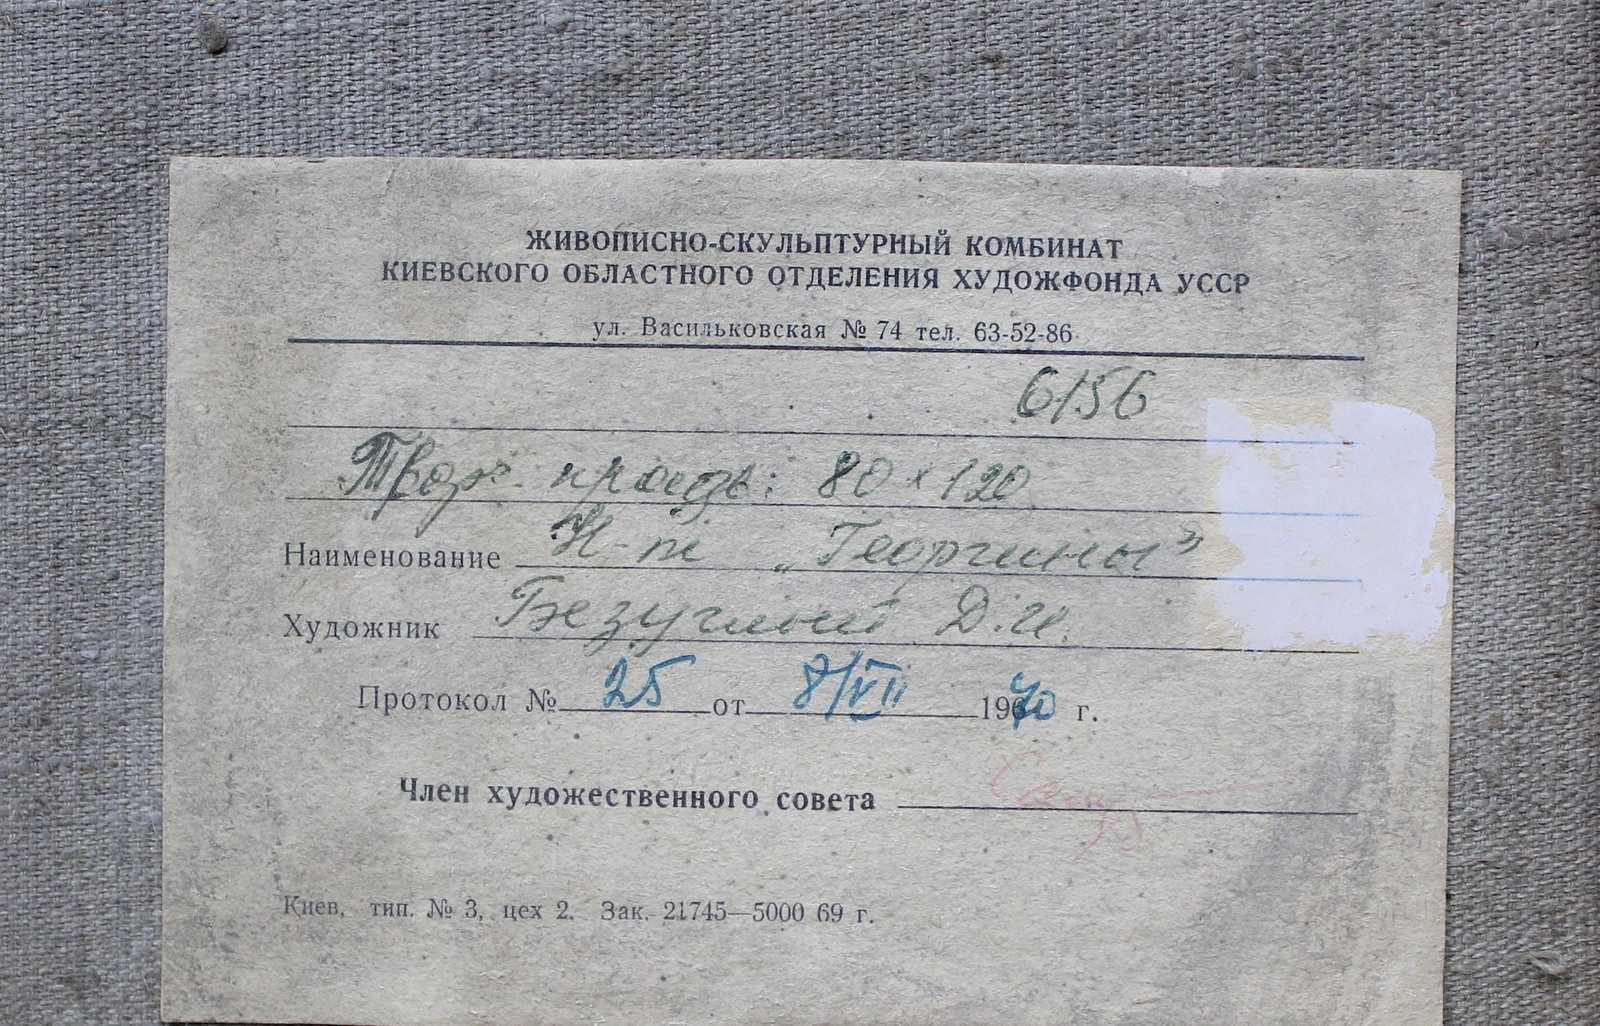 ЖИВОПИСНО-СКУЛЬПТУРНЫЙ КОМБИНАТ
КИЕВСКОГО ОБЛАСТНОГО ОТДЕЛЕНИЯ ХУДОЖФОНДА УССР
ул. Васильковская № 74 тел. 63-52-86
6156
80 × 120
Наименование Н-т „Георгины"
Художник Безуглый Д.И.
Протокол № 25 от 8/VII 1970 г.
Член художественного совета
Киев, тип. № 3, цех 2. Зак. 21745—5000 69 г.